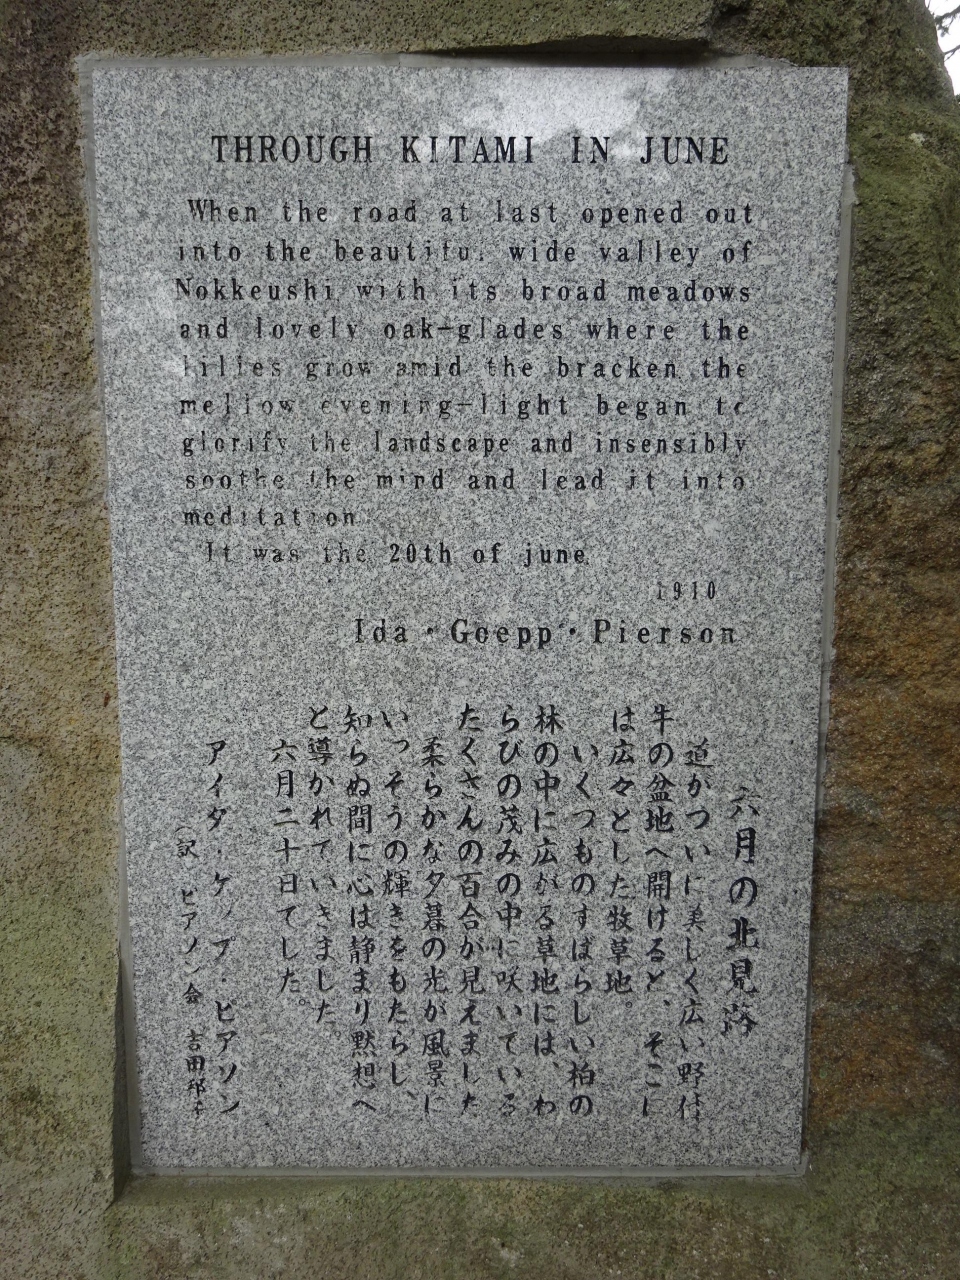 THROUGH KITAMI IN JUNE
When the road at last opened out
into the beautiful wide valley of
Nokkeushi with its broad meadows
and lovely oak-glades where the
lilies grow amid the bracken the
mellow evening-light began to
glorify the landscape and insensibly
soothe the mind and lead it into
meditation
It was the 20th of june
1910
Ida・Goepp・Pierson
六月の北見路
道がついに美しく広い野付
牛の盆地へ開けると、そこに
は広々とした牧草地。
いくつものすばらしい柏の
林の中に広がる草地には、わ
らびの茂みの中に咲いている
たくさんの百合が見えました
柔らかな夕暮の光が風景に
いっそうの輝きをもたらし、
知らぬ間に心は静まり黙想へ
と導かれていきました。
六月二十日でした。
アイダ・ゲップ・ピアソン
(訳 ピアソン会 吉田邦子